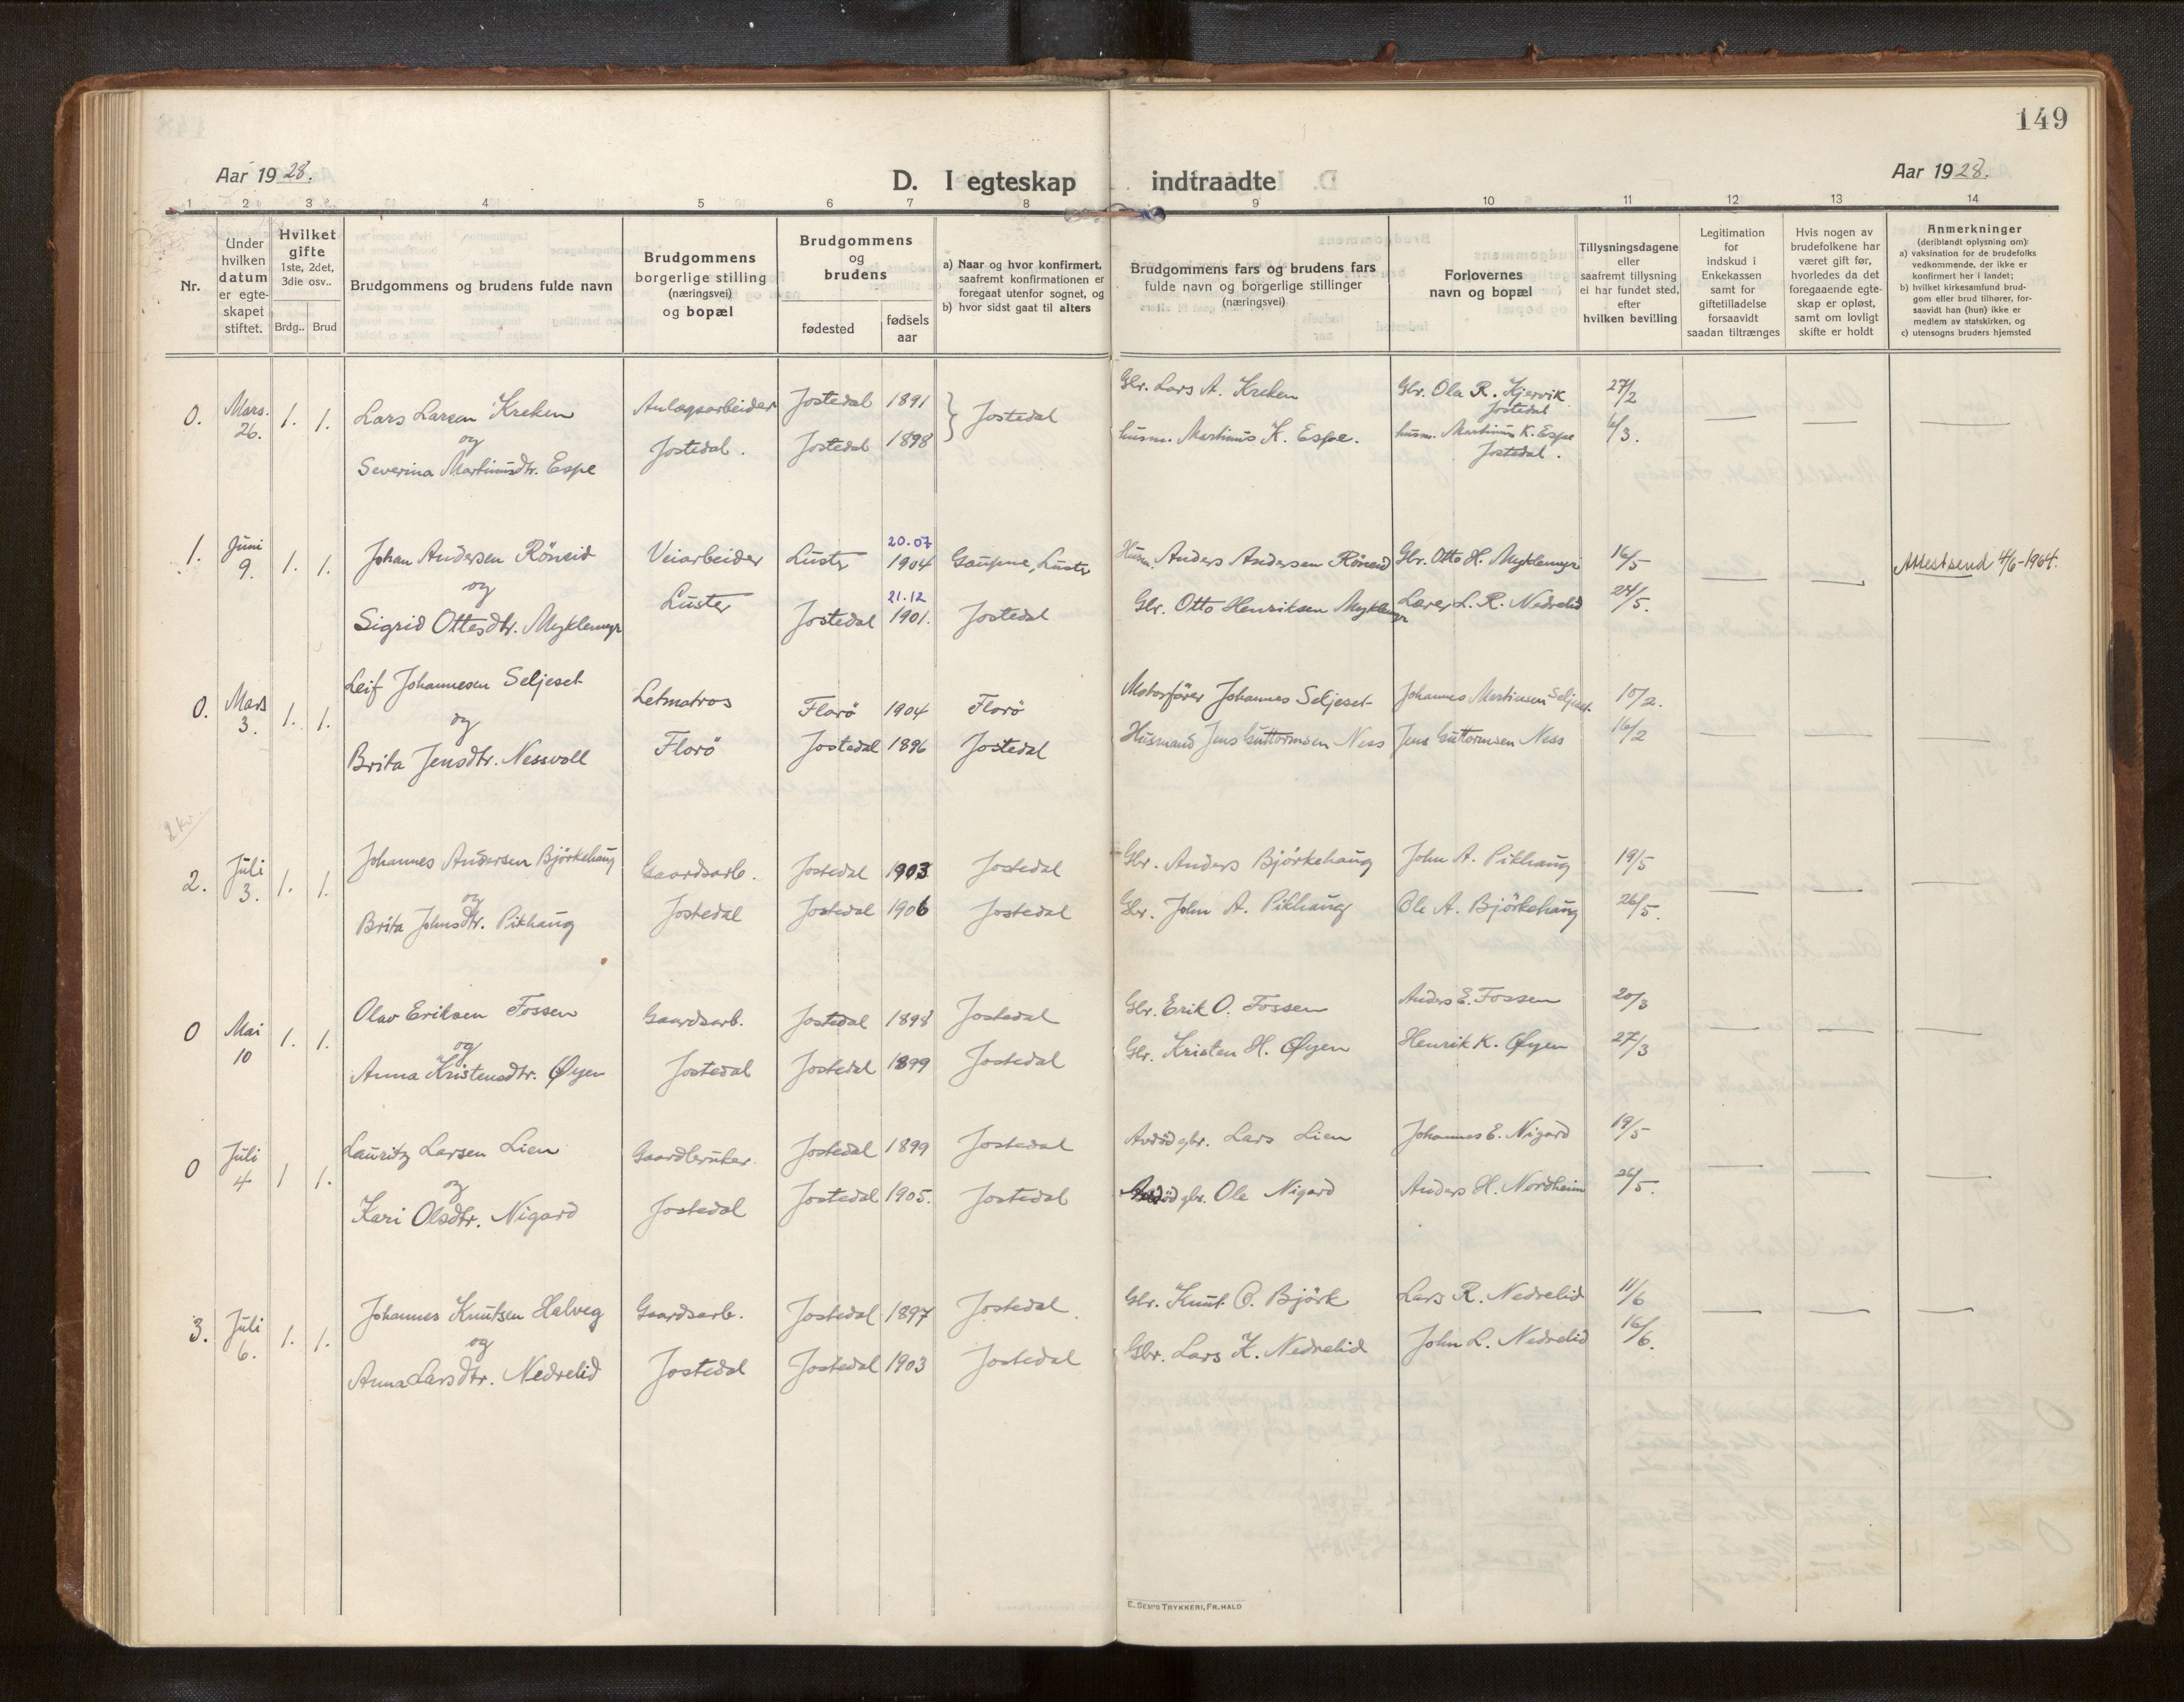 149
Aar 1928.
D. I egteskap indtraadte
Aar 1928.
1 2 3 4 5 6 7 8 9 10 11 12 13 14
Nr.
Under hvilken datum er egte-skapet stiftet.
Hvilket gifte
1ste, 2det, 3die osv..
Brdg.. Brud
Brudgommens og brudens fulde navn
Brudgommens borgerlige stilling (næringsvei) og bopæl
Brudgommens og brudens
fødested
fødsels aar
a) Naar og hvor konfirmert, saafremt konfirmationen er foregaat utenfor sognet, og
b) hvor sidst gaat til alters
Brudgommens fars og brudens fars fulde navn og borgerlige stillinger (næringsvei)
Forlovernes navn og bopæl
Tillysningsdagene eller saafremt tillysning ei har fundet sted, efter hvilken bevilling
Legitimation for indskud i Enkekassen samt for giftetilladelse forsaavidt saadan tiltrænges
Hvis nogen av brudefolkene har været gift før, hvorledes da det foregaaende egte-skap er opløst, samt om lovligt skifte er holdt
Anmerkninger
(deriblandt oplysning om):
a) vaksination for de brudefolks vedkommende, der ikke er konfirmert her i landet;
b) hvilket kirkesamfund brud-gom eller brud tilhører, for-saavidt han (hun) ikke er medlem av statskirken, og
c) utensogns bruders hjemsted
0. Mars. 26. 1. 1. Lars Larsen Kreken Anlægsarbeider Jostedal 1891 } Jostedal Gbr. Lars A. Kreken Gbr. Ola R. Kjervik Jostedal 27/2 — —
og
Severina Martinusdtr. Espe Jostedal. Jostedal 1898 husm. Martinus K. Espe. husm. Martinus K. Espe Jostedal. 6/3.
1. Juni 9. 1. 1. Johan Andersen Röneid Veiarbeider Luster 20.07 1904 Gaupne, Luster Husm. Anders Andersen Röneid Gbr. Otto H. Myklemyr 16/5 — — Attest send 4/6-1964.
og
Sigrid Ottesdtr. Myklemyr Luster Jostedal 21.12 1901. Jostedal Gbr. Otto Henriksen Myklemyr Lærer L. R. Nedrelid 24/5.
0. Mars 3. 1. 1. Leif Johannesen Seljeset Letmatros Florö 1904 Florö Motorförer Johannes Seljeset Johannes Martinsen Seljeset 10/2.
og
Brita Jensdtr. Nessvoll Florö Jostedal 1896 Jostedal Husmand Jens Guttormsen Ness Jens Guttormsen Ness 16/2
2 kr.
2. Juli 3. 1. 1. Johannes Andersen Björkehaug Gaardsarb. Jostedal 1903 Jostedal Gbr. Anders Björkehaug John A. Pikhaug 19/5 — — —
og
Brita Johnsdtr. Pikhaug Jostedal Jostedal 1906 Jostedal Gbr. John A. Pikhaug Ole A. Björkehaug 26/5.
0 Mai 10 1. 1. Olav Eriksen Fossen Gaardsarb. Jostedal 1898 Jostedal Gbr. Erik O. Fossen Anders E. Fossen 20/3 — — —
og
Anna Kristensdtr. Øyen Jostedal Jostedal 1899 Jostedal Gbr. Kristen H. Øyen Henrik K. Øyen 27/3
0 Juli 4 1 1. Lauritz Larsen Lien Gaardbruker. Jostedal 1899 Jostedal Avdöd gbr. Lars Lien Johannes E. Nigard 19/5 — — —
og
Kari Olsdtr. Nigard Jostedal Jostedal 1905. Jostedal Avdöd gbr. Ole Nigard Anders H. Nordheim 26/5.
3. Juli 6. 1. 1. Johannes Knutsen Halveg Gaardsarb. Jostedal 1897 Jostedal. Gbr. Knut O. Björk Lars R. Nedrelid 11/6 — — —
og
Anna Larsdtr. Nedrelid Jostedal Jostedal 1903 Jostedal Gbr. Lars K. Nedrelid John L. Nedrelid 16/6.
E. SEM'S TRYKKERI, FR. HALD